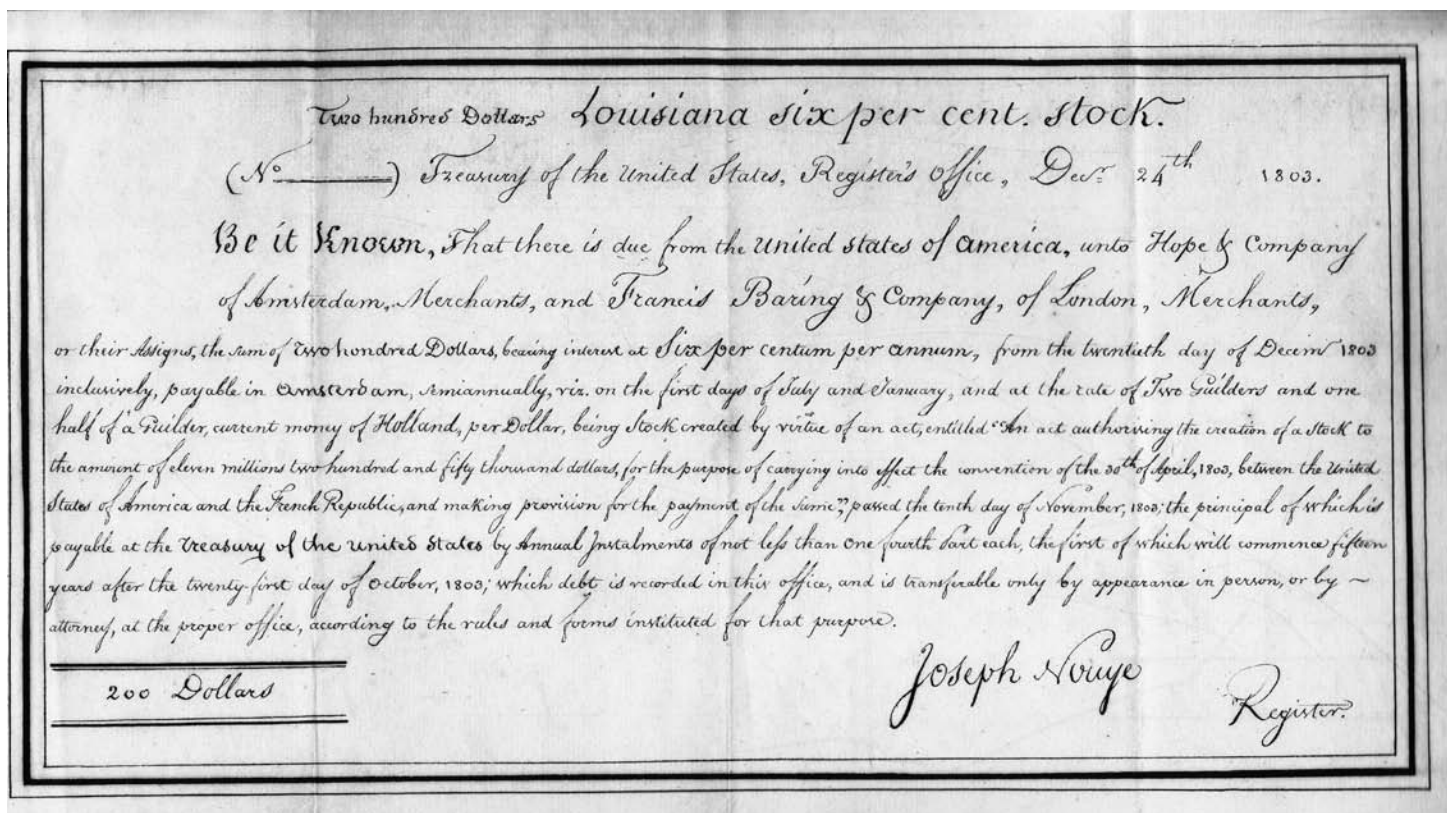 Two hundred Dollars Louisiana six per cent. stock.
(No ) Treasury of the United States, Register's Office, Decr. 24th 1803.
Be it Known, That there is due from the United States of america, unto Hope & Company
of Amsterdam, Merchants, and Francis Baring & Company, of London, Merchants,
or their Assigns, the sum of Two hundred Dollars, bearing interest at Six per centum per annum, from the twentieth day of Decemr 1803
inclusively, payable in Amsterdam, semiannually, viz. on the first days of July and January, and at the rate of Two Guilders and one
half of a Guilder, current money of Holland, per Dollar, being Stock created by virtue of an act, entitled "An act authorising the creation of a Stock to
the amount of eleven millions two hundred and fifty thousand dollars, for the purpose of carrying into effect the convention of the 30th of April, 1803, between the United
States of America and the French Republic, and making provision for the payment of the same", passed the tenth day of November, 1803; the principal of which is
payable at the Treasury of the United States by Annual Instalments of not less than One fourth Part each, the first of which will commence fifteen
years after the twenty-first day of October, 1803; which debt is recorded in this office, and is transferable only by appearance in person, or by ~
attorney, at the proper office, according to the rules and forms instituted for that purpose.
200 Dollars
Joseph Nourse
Register.